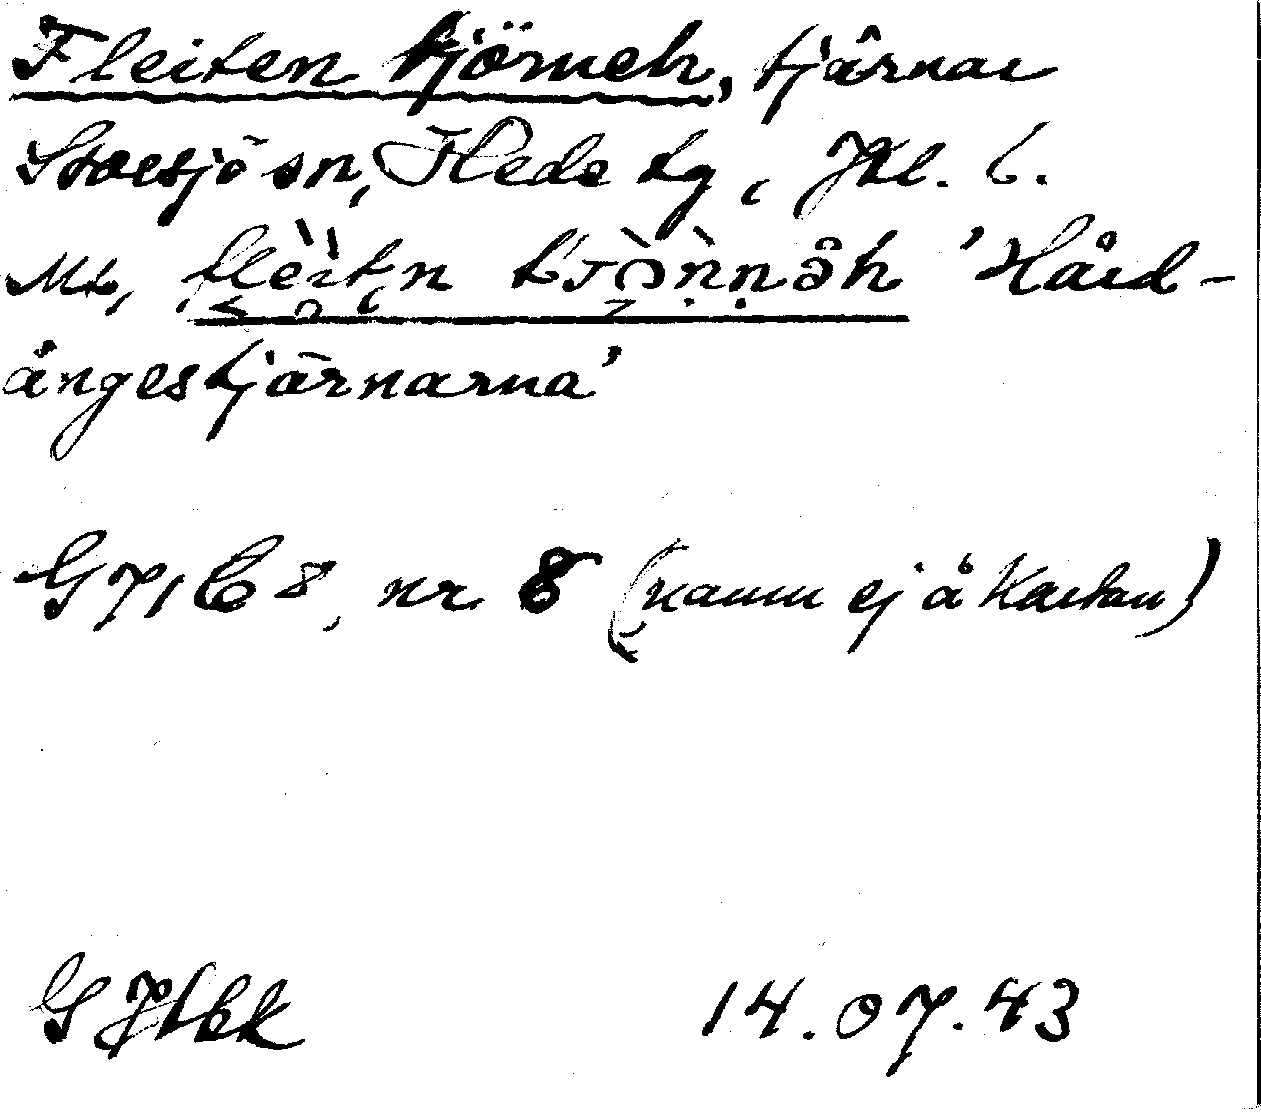 Fleiten tjörneh, tjärnar
Storsjö sn, Hede tg, Jtl. l.
Ml, flèìtn tjòǹnåh 'Hård-
ångestjärnarna'
G 71 C 8, nr 8 (namn ej å kartan)
G 14.07.43